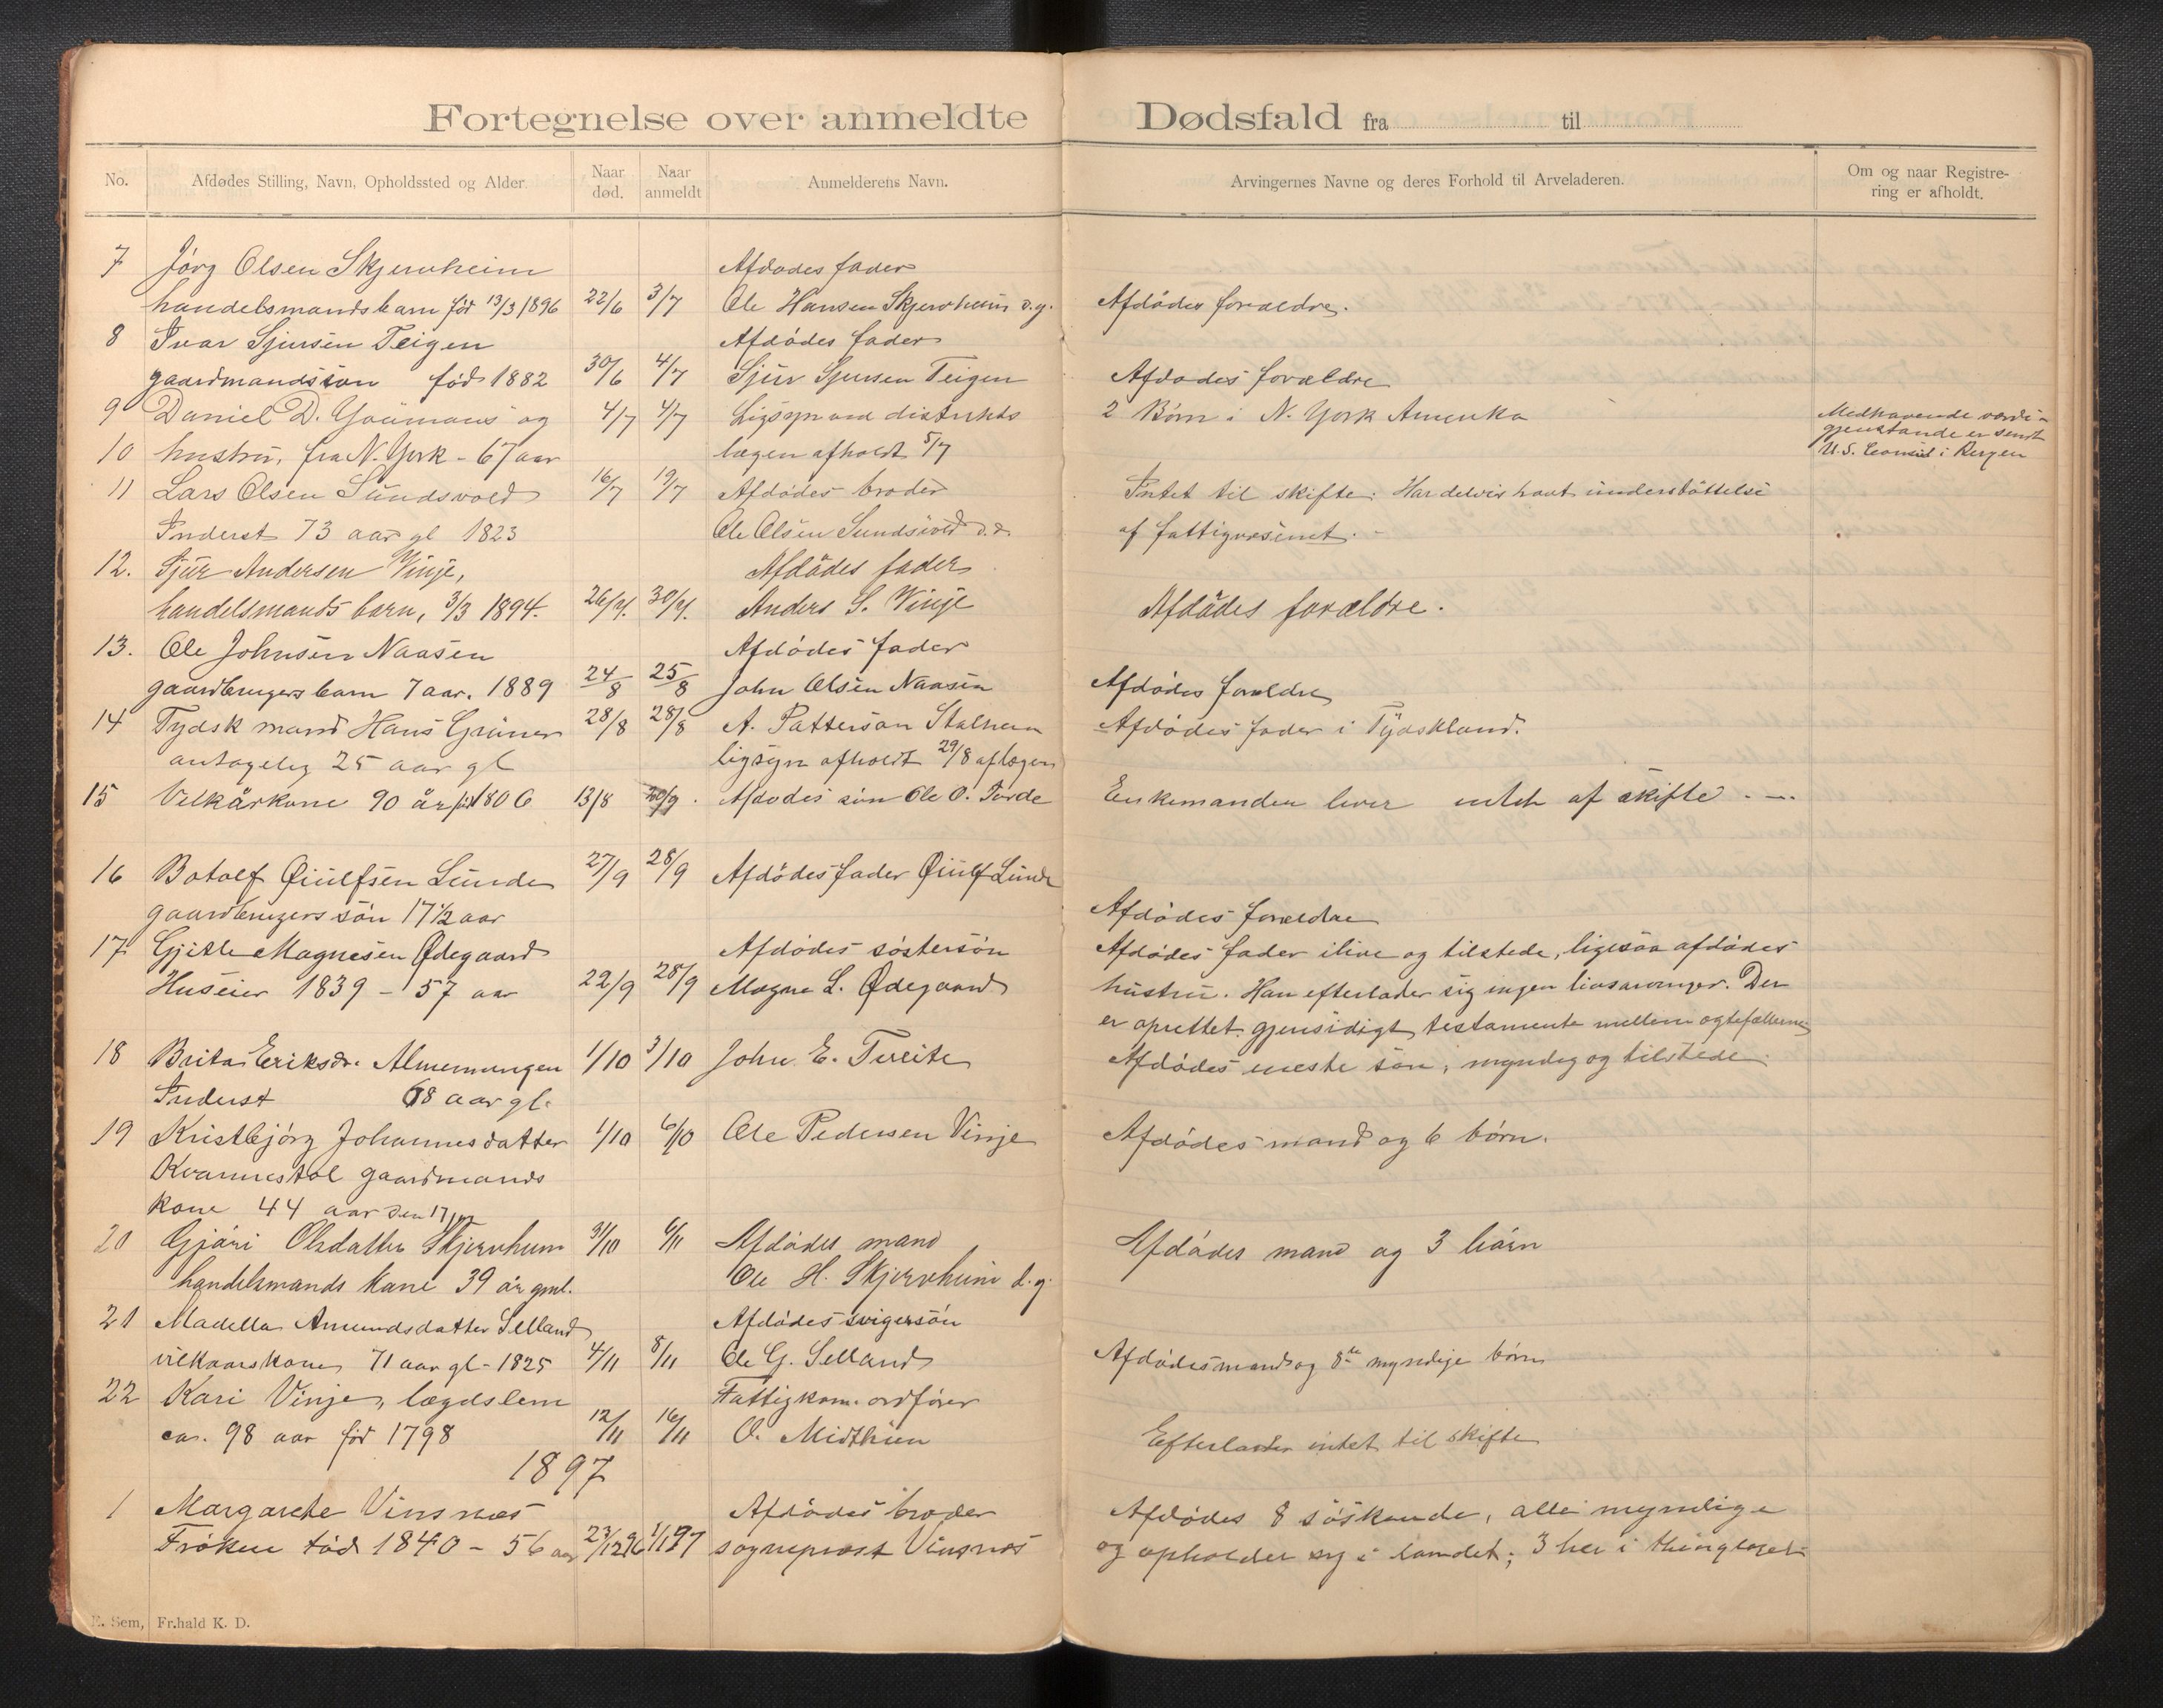 Fortegnelse over anmeldte Dødsfald fra til
No. Afdødes Stilling, Navn, Opholdssted og Alder. Naar død. Naar anmeldt Anmelderens Navn. Arvingernes Navne og deres Forhold til Arveladeren. Om og naar Registrering er afholdt.
7 Jørg Olsen Skjervheim Afdødes fader
handelsmandsbarn fød 13/3 1896 22/6 3/7 Ole Hansen Skjervheim d.y. Afdødes forældre.
8 Ivar Sjursen Teigen Afdødes fader
gaardmandssøn fød 1882 30/6 4/7 Sjur Sjursen Teigen Afdødes forældre
9 Daniel D. Youmans og 4/7 4/7 Ligsyn ved distrikts 2 Børn i N. York Amerika Medhavende værdi-
gjenstande er sendt
10 hustru, fra N. York - 67 aar lægen afholdt 5/7 U.S. Consul i Bergen
11 Lars Olsen Sundsvold 16/7 19/7 Afdødes broder Intet til skifte. Har delvis havt understøttelse
Inderst 73 aar gl 1823 Ole Olsen Sundsvold af fattigvæsenet. -
12. Sjur Andersen Vinje, Afdødes fader
handelsmands barn, 3/3 1894. 26/7. 30/7. Anders S. Vinje Afdødes forældre.
13. Ole Johnsen Naasen Afdødes fader
gaardbrugers barn 7 aar. 1889 24/8 25/8 John Olsen Naasen Afdødes forældre
14 Tydsk mand Hans Grüner 28/8 28/8 A. Patterson Stalheim Afdødes fader i Tydskland.
antagelig 25 aar gl ligsyn afholdt 29/8 af lægen
15 Velkårkone 90 år fød 1806 13/8 20/9. Afdødes søn Ole O. Tvrde Enkemanden lever af skifte. -
16 Botolf Øiulfsen Lunde 27/9 28/9 Afdødes fader Øiulf Lunde
gaardbrugers søn 17 1/2 aar Afdødes forældre
17 Gjitle Magnesen Ødegaard Afdødes søstersøn Afdødes fader ilive og tilstede, ligesaa afdødes
Huseier 1839 - 57 aar 22/9 28/9 Magne L. Ødegaard hustru. Han efterlader sig ingen livsarvinger. Der
er oprettet gjensidigt testamente mellem ægtefællerne
18 Brita Eriksdr. Almenningen 1/10 3/10 John E. Tveite Afdødes eneste søn, myndig og tilstede.
Inderst 68 aar gl.
19 Kristbjørg Johannesdatter 1/10 6/10 Ole Pedersen Vinje Afdødes mand og 6 børn.
Kvannestøl gaardmands
kone 44 aar den 17
20 Gjøri Olsdatter Skjervheim 31/10 6/11 Afdødes mand Afdødes mand og 3 børn
handelsmands kone 39 år gml. Ole H. Skjervheim d.y.
21 Madella Amundsdatter Selland Afdødes svigersøn
vilkaarskone 71 aar gl - 1825 4/11 8/11 Ole G. Selland Afdødes mand og 8te myndige børn
22 Kari Vinje, lægdslem Fattigkom. ordfører
ca. 98 aar fød 1798 12/11 16/11 O. Midthun Efterlader intet til skifte
1897
1 Margarethe Vinsnes Afdødes broder Afdødes 8 søskende, alle myndige
Frøken født 1840 - 56 aar 23/12 96 1/1 97 sogneprest Vinsnes og opholder sig i landet; 3 her i thinglaget
E. Sem, Fr.hald K. D.